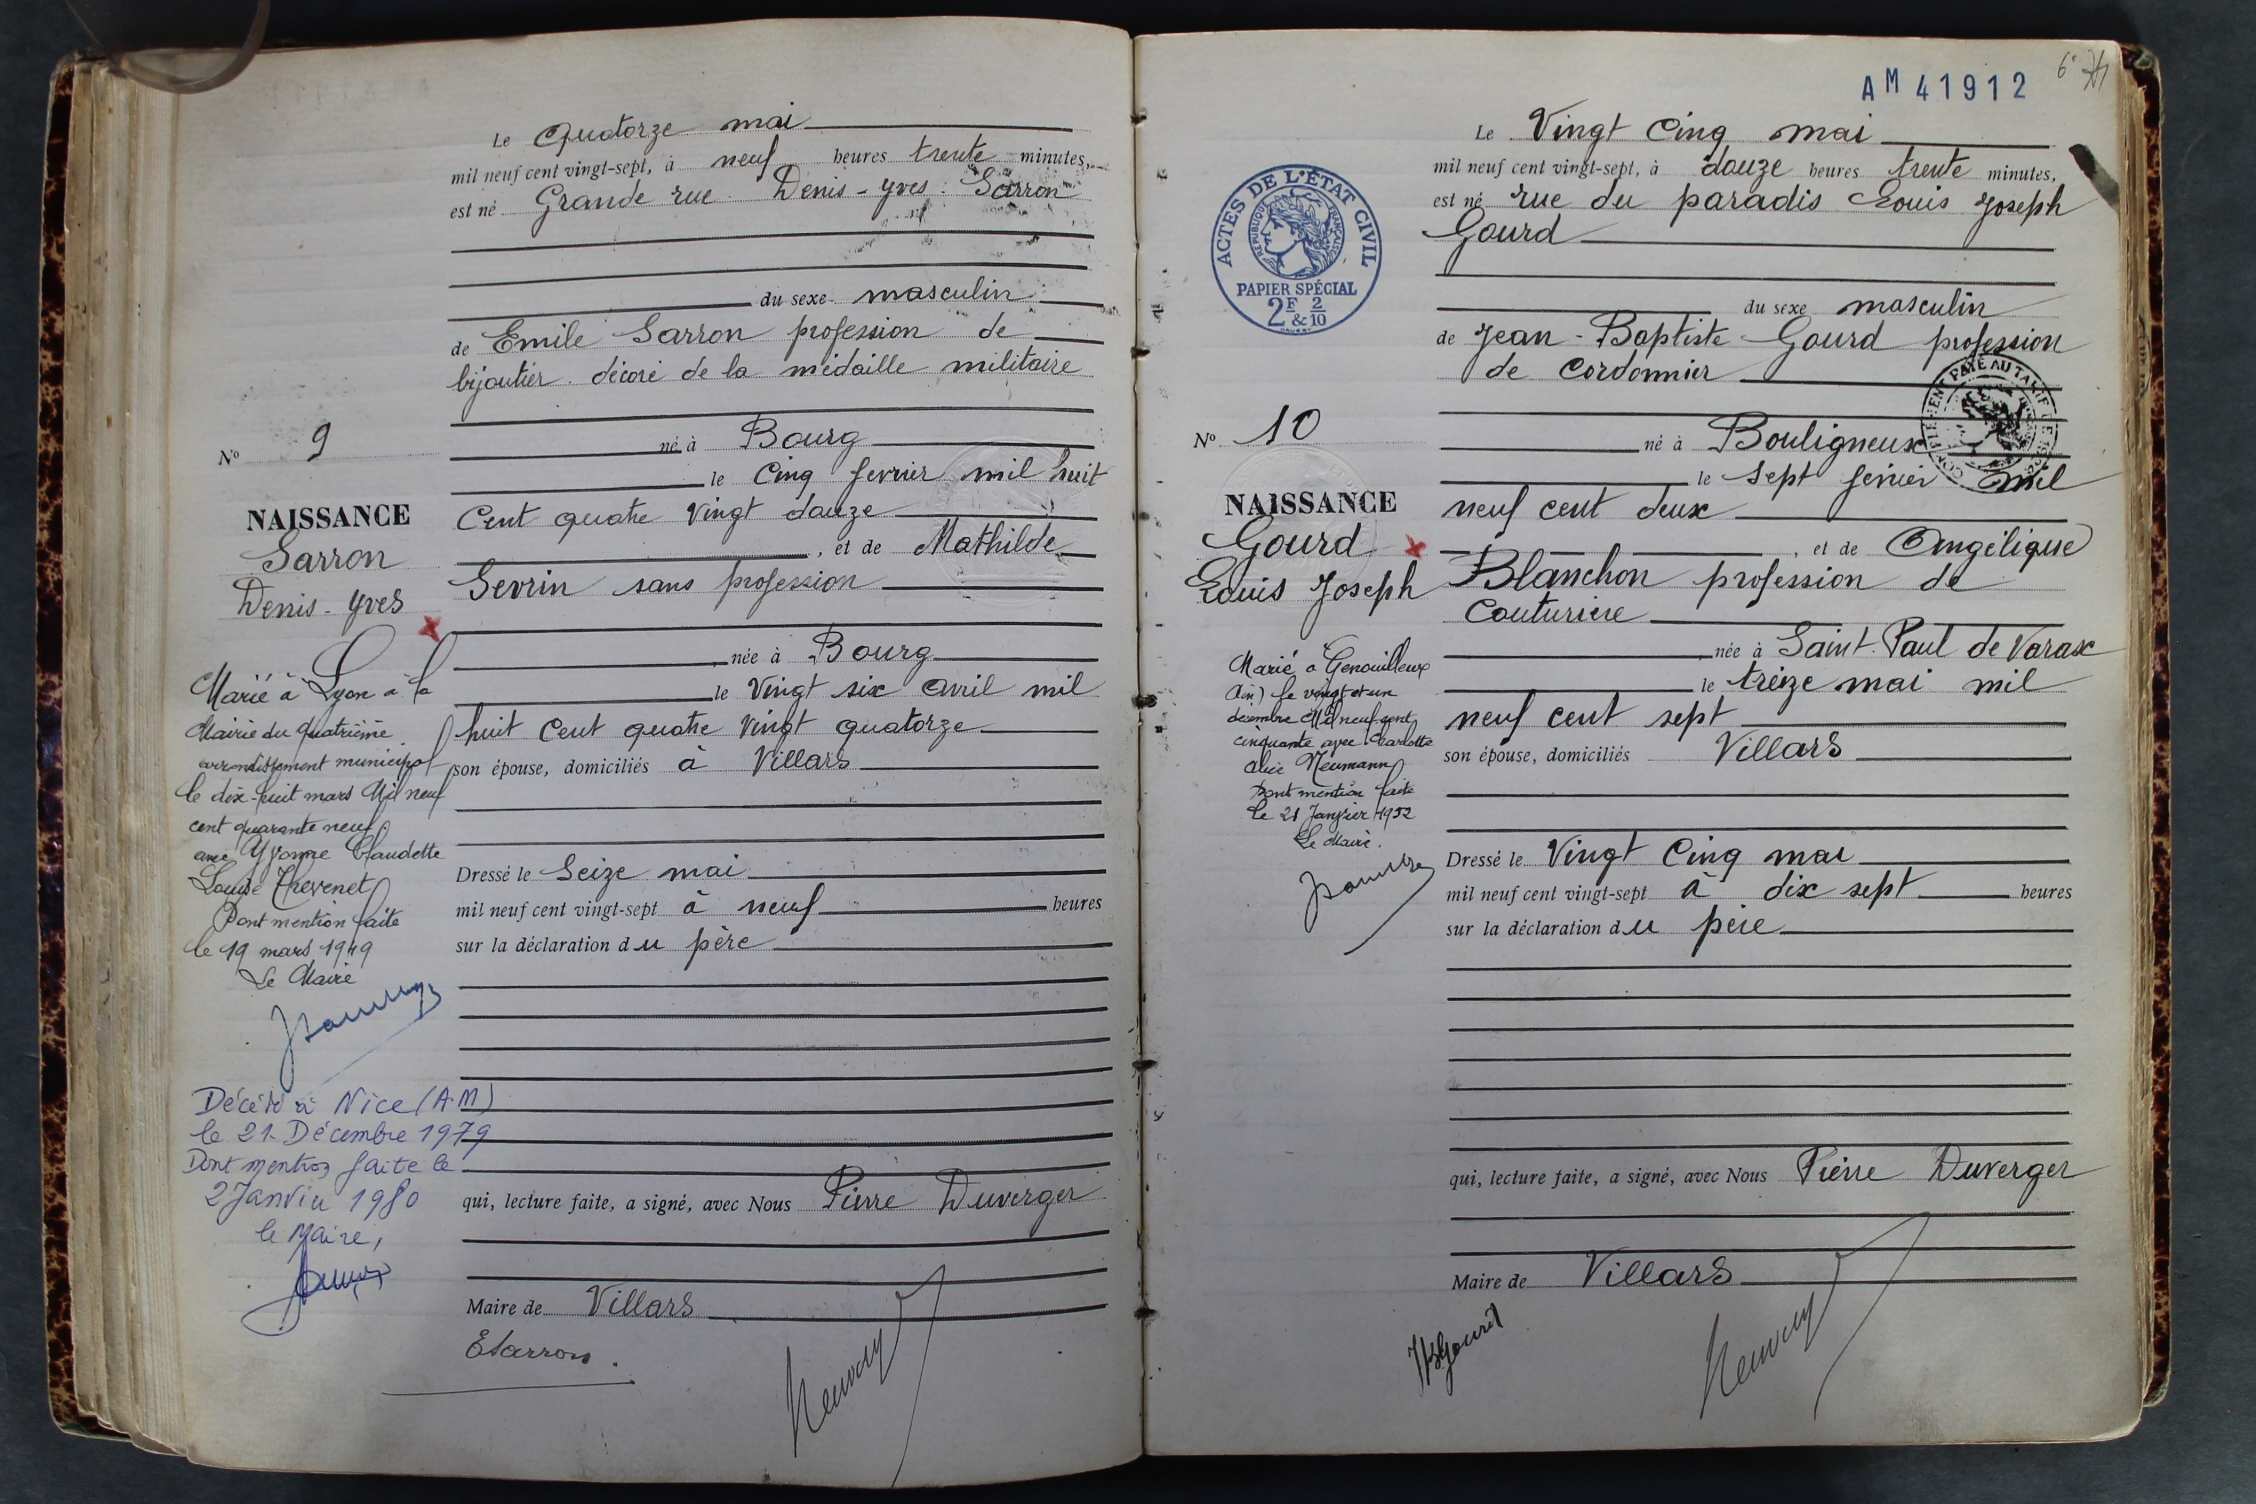 Le Quatorze mai
mil neuf cent vingt-sept, à neuf heures trente minutes,
est né Grande rue Denis-Yves Sarron
du sexe masculin
de Emile Sarron profession de
bijoutier décoré de la médaille militaire
né à Bourg
le cinq fevrier mil huit
Cent quatre vingt douze
, et de Mathilde
Sevrin sans profession
, née à Bourg
le Vingt six avril mil
huit Cent quatre Vingt quatorze
son épouse, domiciliés à Villars
Dressé le Seize mai
mil neuf cent vingt-sept à neuf heures
sur la déclaration du père
qui, lecture faite, a signé, avec Nous Pierre Duverger
Maire de Villars
ESarron.
No 9
NAISSANCE
Sarron
Denis-Yves
Marié à Lyon à la
Mairie du quatrième
arrondissement municipal
le dix-huit mars Mil neuf
cent quarante neuf
avec Yvonne Claudette
Louise Thevenet
Dont mention faite
le 19 mars 1949
Le Maire
Décédé à Nice (A.M)
le 21 Décembre 1979
Dont mention faite le
2 Janvier 1980
le Maire,
AM 41912
6e
Le Vingt Cinq mai
mil neuf cent vingt-sept, à douze heures trente minutes,
est né rue du paradis Louis Joseph
Gourd
du sexe masculin
de Jean-Baptiste Gourd profession
de Cordonnier
né à Bouligneux
le Sept février mil
neuf cent deux
, et de Angélique
Blanchon profession de
Couturière
née à Saint-Paul de Varax
le treize mai mil
neuf cent sept
son épouse, domiciliés Villars
Dressé le Vingt Cinq mai
mil neuf cent vingt-sept à dix sept heures
sur la déclaration du père
qui, lecture faite, a signé, avec Nous Pierre Duverger
Maire de Villars
JBGourd
ACTES DE L'ÉTAT CIVIL
RÉPUBLIQUE FRANÇAISE
PAPIER SPÉCIAL
2F & 2/10
No 10
NAISSANCE
Gourd
Louis Joseph
Marié à Genouilleux
(Ain) le vingt et un
décembre Mil neuf cent
cinquante avec Charlotte
Alice Neumann
Dont mention faite
le 21 Janvier 1952
Le Maire.